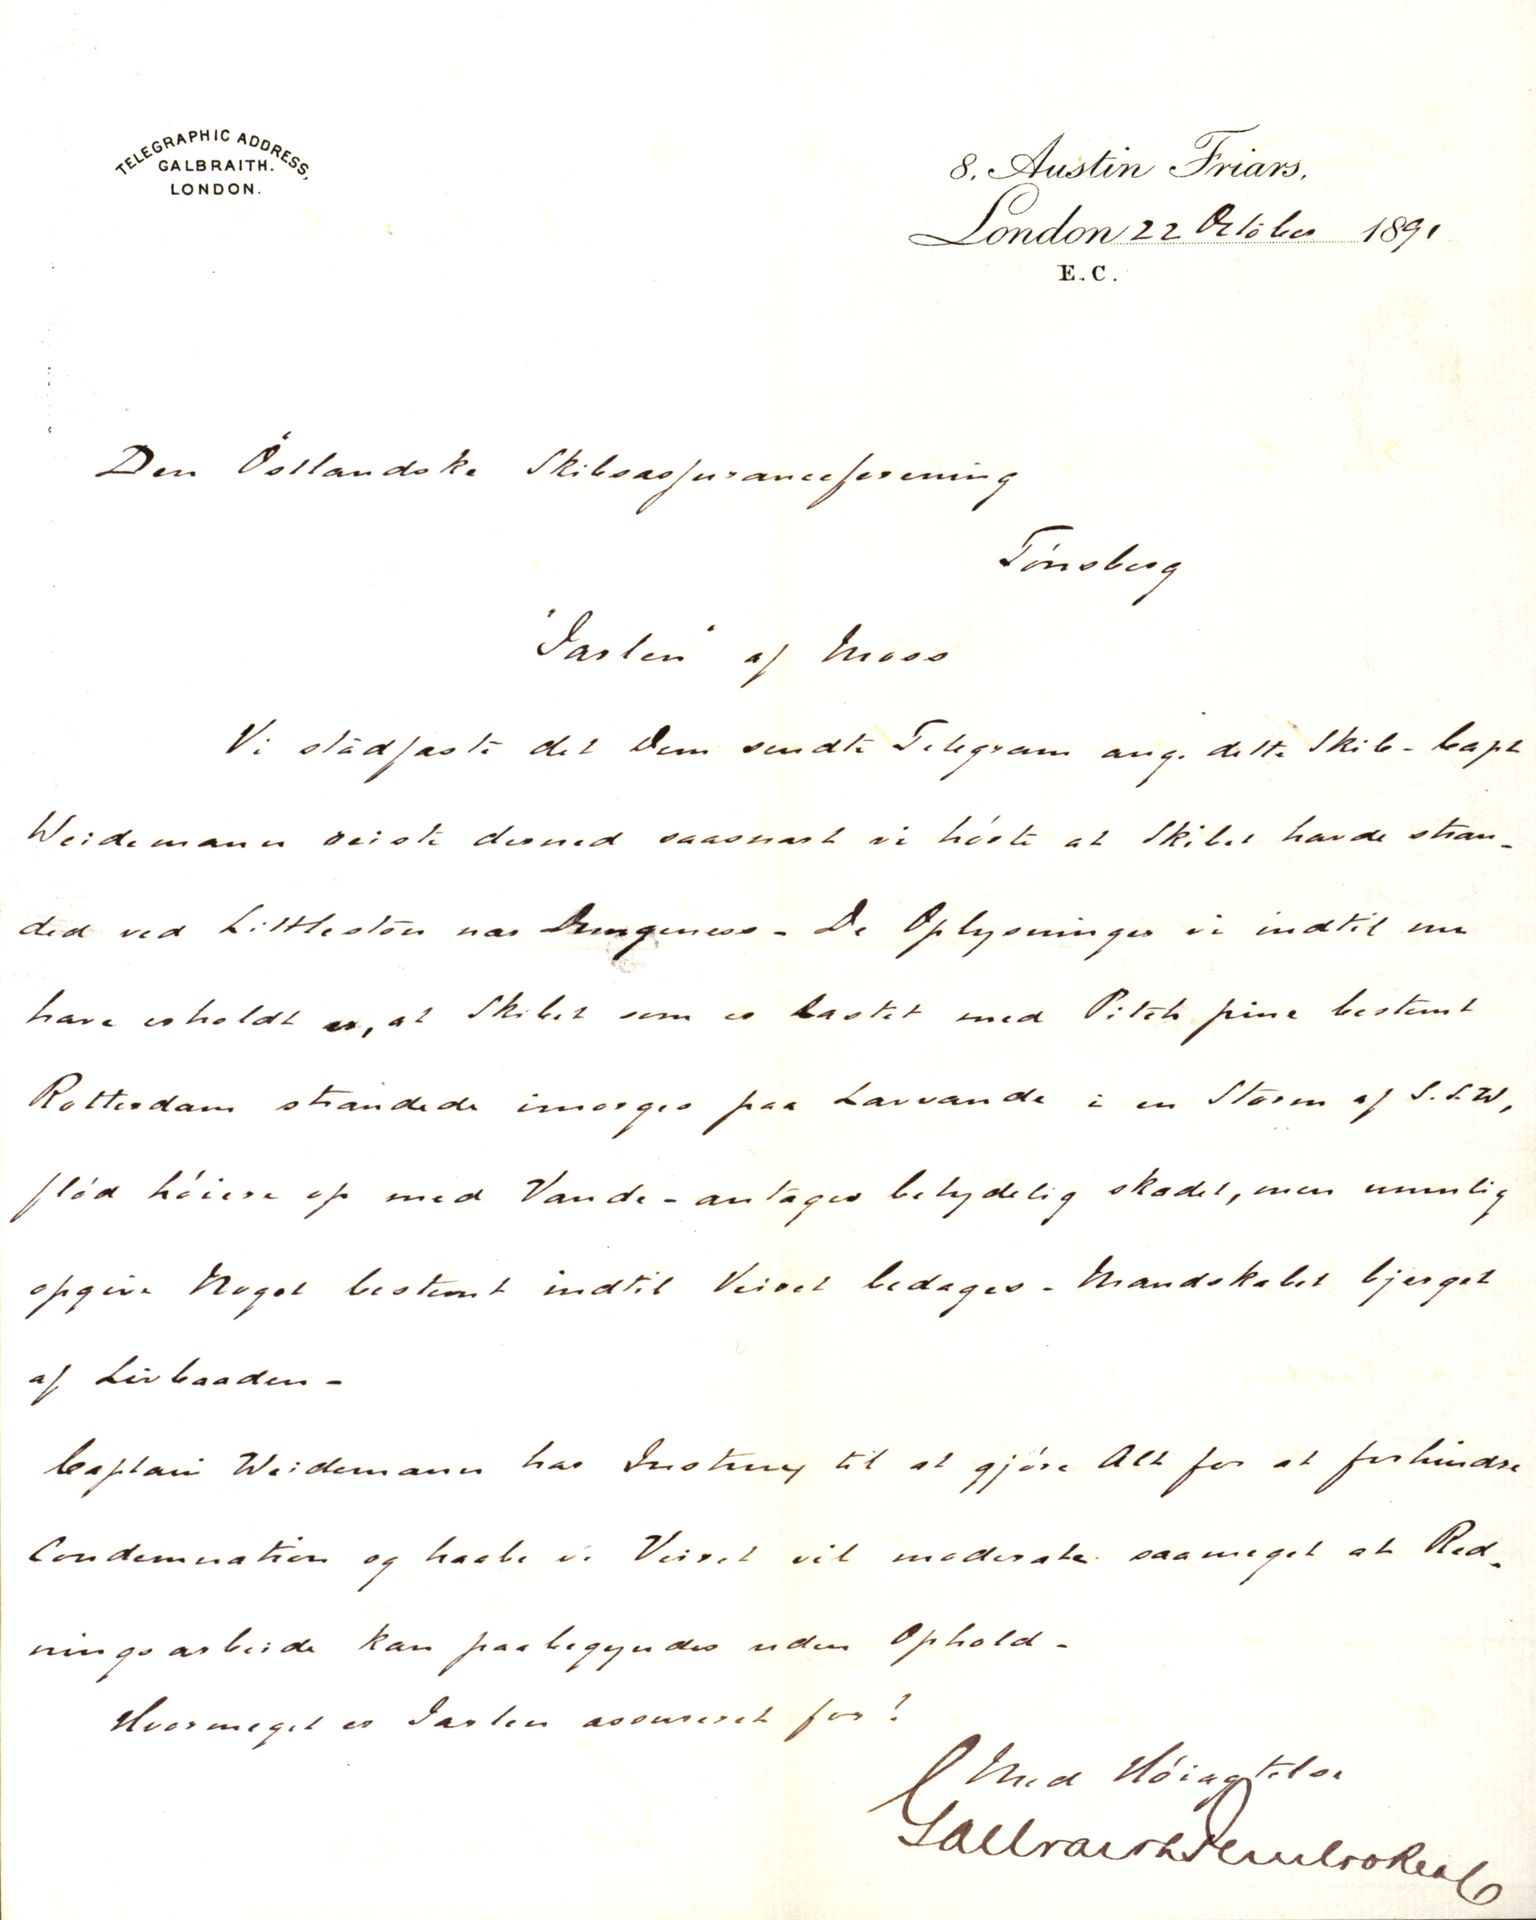 TELEGRAPHIC ADDRESS,
GALBRAITH.
LONDON.
8, Austin Friars,
London 22 October 1891
E.C.
Den Östlandske Skibsassuranceforening
Tónsberg
"Jarlen" af Moss
Vi stadfæste det Dem sendte Telegram ang. dette Skib - Capt
Weidemann reiste derned saasnart vi hórte at Skibet havde stran-
ded ved Littlestón nær Dungeness - De Oplysninger vi indtil nu
have erholdt er, at Skibet som er lastet med Pitch pine bestemt
Rotterdam strandede imorges paa Lavvande i en Storm af S.S.W,
flód hóiere op med Vande - antages betydelig skadet, men umulig
opgive Noget bestemt indtil Veiret bedages - Mandskabet bjerget
af Livbaaden -
Captain Weidemann har Instrux til at gjóre Alt for at forhindre
Condemnation og haabe vi Veiret vil moderate saameget at Red-
ningsarbeide kan paabegyndes uden Ophold -
Hvormeget er Jarlen assureret for?
Med Hóiagtelse
Galbraith Pembroke & Co